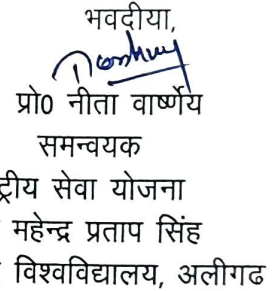 भवदीया,
प्रो0 नीता वार्ष्णेय
समन्वयक
ट्रीय सेवा योजना
महेन्द्र प्रताप सिंह
विश्वविद्यालय, अलीगढ